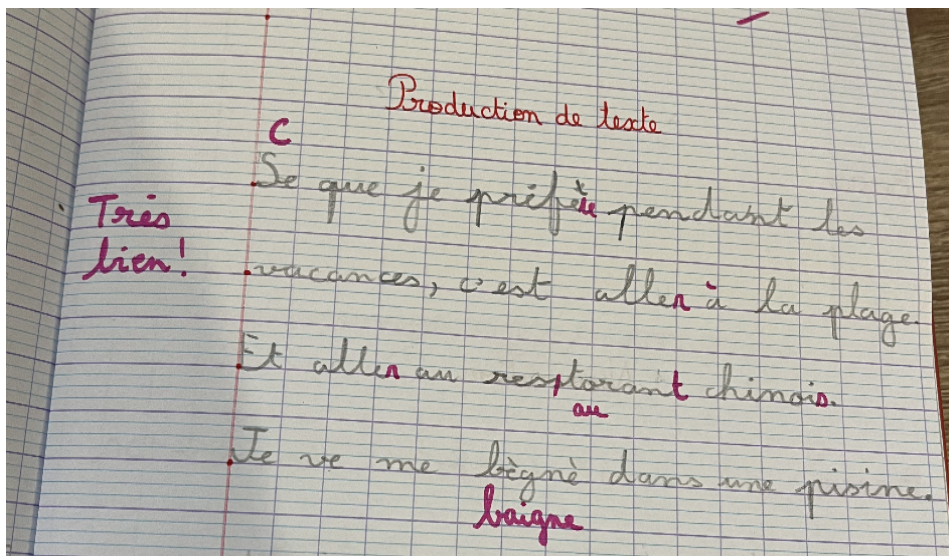 Production de texte
C
Se que je préfère pendant les
Très
bien!
vacances, c'est aller à la plage.
Et aller au restorant chinois.
au
Je ve me bègnè dans une pisine.
baigne